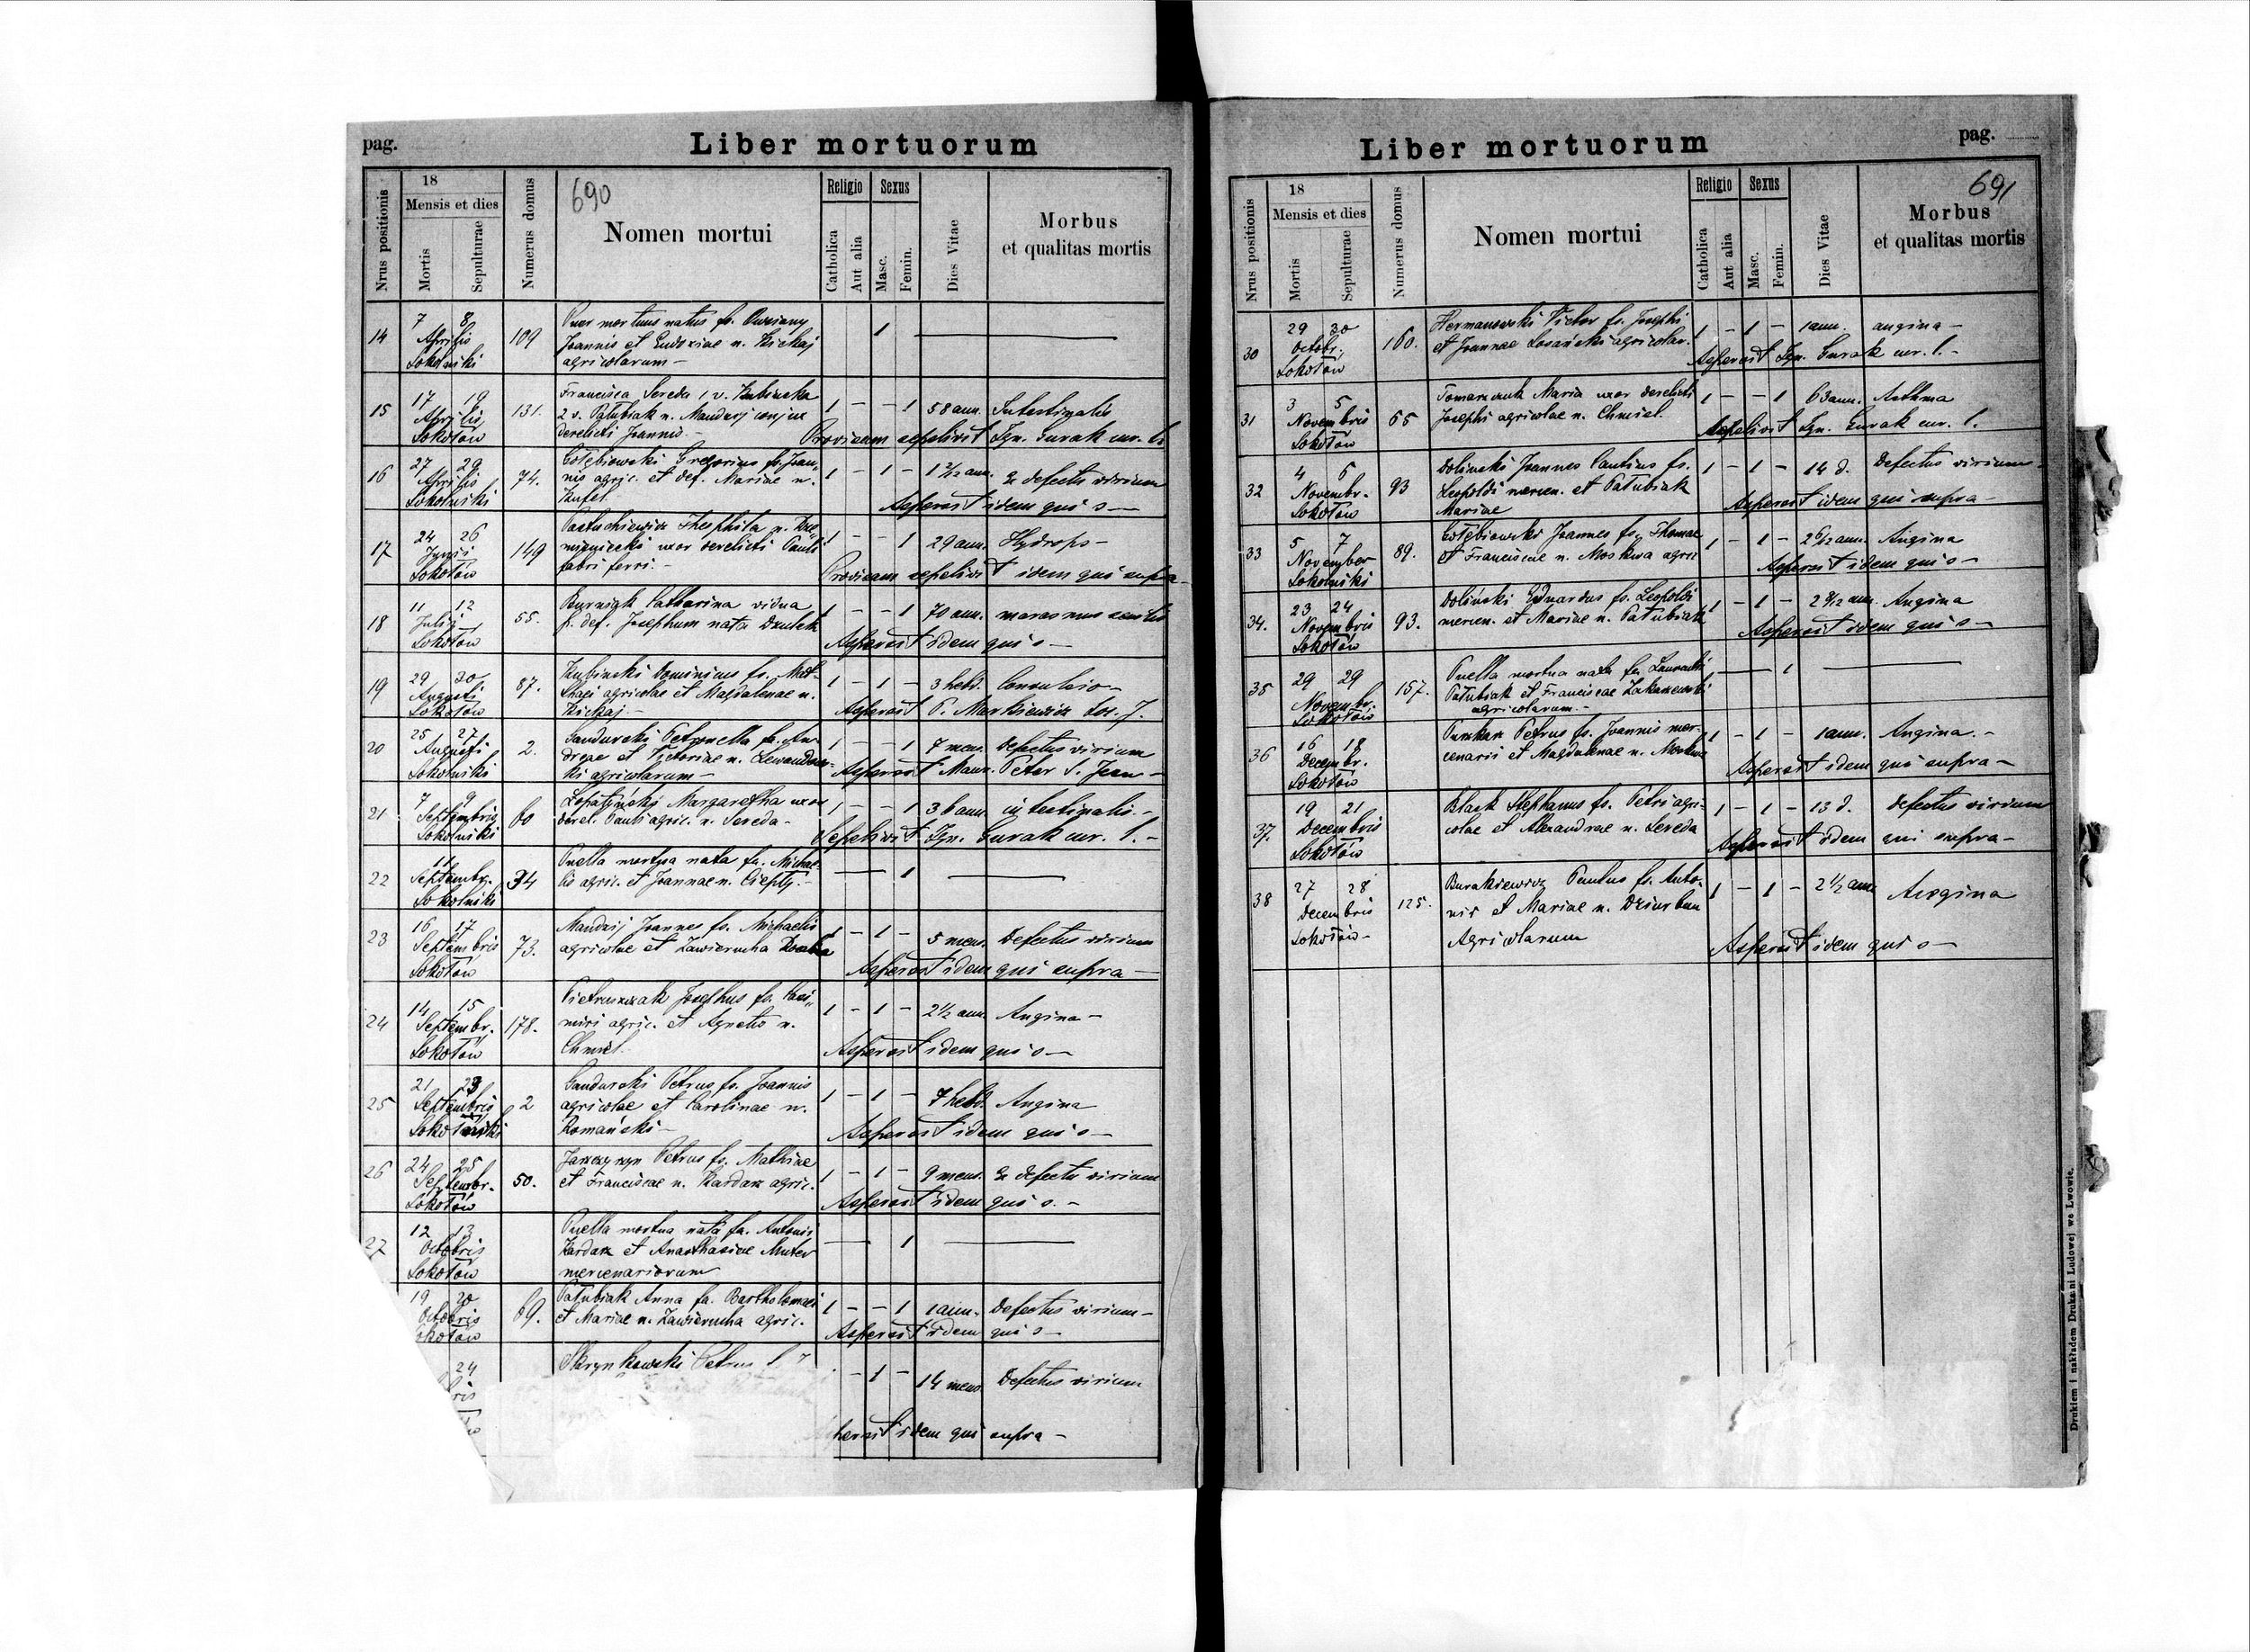 pag.
Liber mortuorum
Nrus positionis
18
Mensis et dies
Mortis
Sepulturae
Numerus domus
690
Nomen mortui
Religio
Catholica
Aut alia
Sexus
Masc.
Femin.
Dies Vitae
Morbus
et qualitas mortis
14
7 8
Aprilis
Sokolniki
109
Puer mortuus natus fs.
Joannis et Eudoxiae n. Kickaj
agricolarum –
1
15
17 19
Aprilis
Sokołów
131.
Francisca Sereda 1 v. Kubinska
2 v. Patubiak n. Mandrij conjux
derelicti Joannis –
1 – – 1 58 ann. Intestinalis
Provisam sepelivit Ign. Gurak cur. l.
16
27 29
Aprilis
Sokolniki
74.
Gołębiowski Gregorius fs. Joan-
nis agric. et def. Mariae n.
Kufel
1 – 1 – 1 2/12 ann. Ex defectu virium
Asperait idem qui s –
17
24 26
Junii
Sokołów
149
Pastuchiewicz Theophila n.
uxor derelicti Pauli
fabri ferri. –
1 – – 1 29 ann. Hydrops –
Provisam sepelivit idem qui supra –
18
11 12
Julii
Sokołów
55.
Burniak Catharina vidua
p. def. Josephum nata
1 – – 1 70 ann. marasmus senilis
Asperait idem qui s –
19
29 30
Augusti
Sokołów
87.
Kubinski Dominicus fs. Mat-
thaei agricolae et Magdalenae n.
Kickaj –
1 – 1 – 3 hebd. Convulsio –
Asperait P. Markiewicz Soc. J.
20
25 27
Augusti
Sokolniki
2.
Sandurski Petronella fa. An-
dreae et Victoriae n. Lewandows-
ki agricolarum –
1 – – 1 7 mens. Defectus virium
Asperait Maur. Peter S. Jean –
21
7 9
Septembris
Sokolniki
60
Łopatyński Margaretha uxor
derel. Pauli agric. n. Sereda –
1 – – 1 36 ann. intestinalis –
Sepelivit Ign. Gurak cur. l. –
22
11
Septembr.
Sokolniki
34
Puella mortua nata fa. Michae-
lis agric. et Joannae n. Ciepły. –
1
23
16 17
Septembris
Sokołów
73.
Mandrij Joannes fs. Michaelis
agricolae et Zawierucha
1 – 1 – 5 mens. Defectus virium
Asperait idem qui supra –
24
14 15
Septembr.
Sokołów
178.
Pietruszczak Josephus fs. Casi-
miri agric. et Agnetis n.
Chmiel.
1 – 1 – 2 1/2 ann. Angina –
Asperait idem qui s –
25
21 23
Septembris
2
Sandurski Petrus fs. Joannis
agricolae et Carolinae n.
Romański –
1 – 1 – 7 hebd. Angina
Asperait idem qui s –
26
24 25
Septembr.
Sokołów
50.
Petrus fs. Mathiae
et Franciscae n. Kardasz agric.
1 – 1 – 9 mens. Ex defectu virium
Asperait idem qui s. –
27
12 13
Octobris
Sokołów
Puella mortua nata fa. Antonii
Kardasz et Anasthasiae Muter
mercenariorum
1
19 20
Octobris
69.
Patubiak Anna fa. Bartholomaei
et Mariae n. Zawierucha agric.
1 – – 1 1 ann. Defectus virium –
Asperait idem qui s –
24
Skrynkowski Petrus
– 1 – 14 mens. Defectus virium
idem qui supra –
Liber mortuorum
pag.
691
Nrus positionis
18
Mensis et dies
Mortis
Sepulturae
Numerus domus
Nomen mortui
Religio
Catholica
Aut alia
Sexus
Masc.
Femin.
Dies Vitae
Morbus
et qualitas mortis
30
29 30
Octobr.
Sokołów
160.
Hermanowski Victor fs. Josephi
et Joannae Losański agricolar.
1 – 1 – 1 ann. angina –
Asperait Ign. Gurak cur. l. –
31
3 5
Novembris
Sokołów
65
Maria uxor derelicti
Josephi agricolae n. Chmiel.
1 – – 1 63 ann. Asthma
Sepelivit Ign. Gurak cur. l.
32
4 6
Novembr.
Sokołów
93
Doliński Joannes Cantius fs.
Leopoldi mercen. et Patubiak
Mariae
1 – 1 – 14 d. Defectus virium
Asperait idem qui supra –
33
5 7
November
Sokolniki
89.
Gołębiowski Joannes fs. Thomae
et Franciscae n. Moskwa agric.
1 – 1 – 2 6/12 ann. Angina
Asperait idem qui s –
34.
23 24
Novembris
Sokołów
93.
Doliński Eduardus fs. Leopoldi
mercen. et Mariae n. Patubiak
1 – 1 – 2 8/12 ann. Angina
Asperait idem qui s –
35
29 29
Novembr.
Sokołów
157.
Puella mortua nata fa. Laurentii
Patubiak et Franciscae Zakaszewski
agricolarum –
1
36
16 18
Decembr.
Sokołów
Petrus fs. Joannis mer-
cenarii et Magdalenae n. Moskwa
1 – 1 – 1 ann. Angina. –
Asperait idem qui supra –
37.
19 21
Decembris
Sokołów
Black Stephanus fs. Petri agri-
colae et Alexandrae n. Sereda
1 – 1 – 13 d. Defectus virium
Asperait idem qui supra –
38
27 28
Decembris
Sokołów –
125.
Burakiewicz Paulus fs. Anto-
nii et Mariae n. Dziurban
Agricolarum
1 – 1 – 2 1/2 ann. Angina
Asperait idem qui s –
Drukiem i nakładem Drukarni Ludowej we Lwowie.